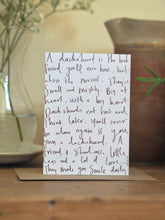 A dachshund is the best
friend you'll ever have, but
also the naughtiest. They're
small and mighty. Big of
heart, with a big heart.
Dachshunds eat first and
think later. You'll never
be alone again if you
own a dachshund. A
friend, a shadow, little
legs and a lot of love.
They make you smile daily.